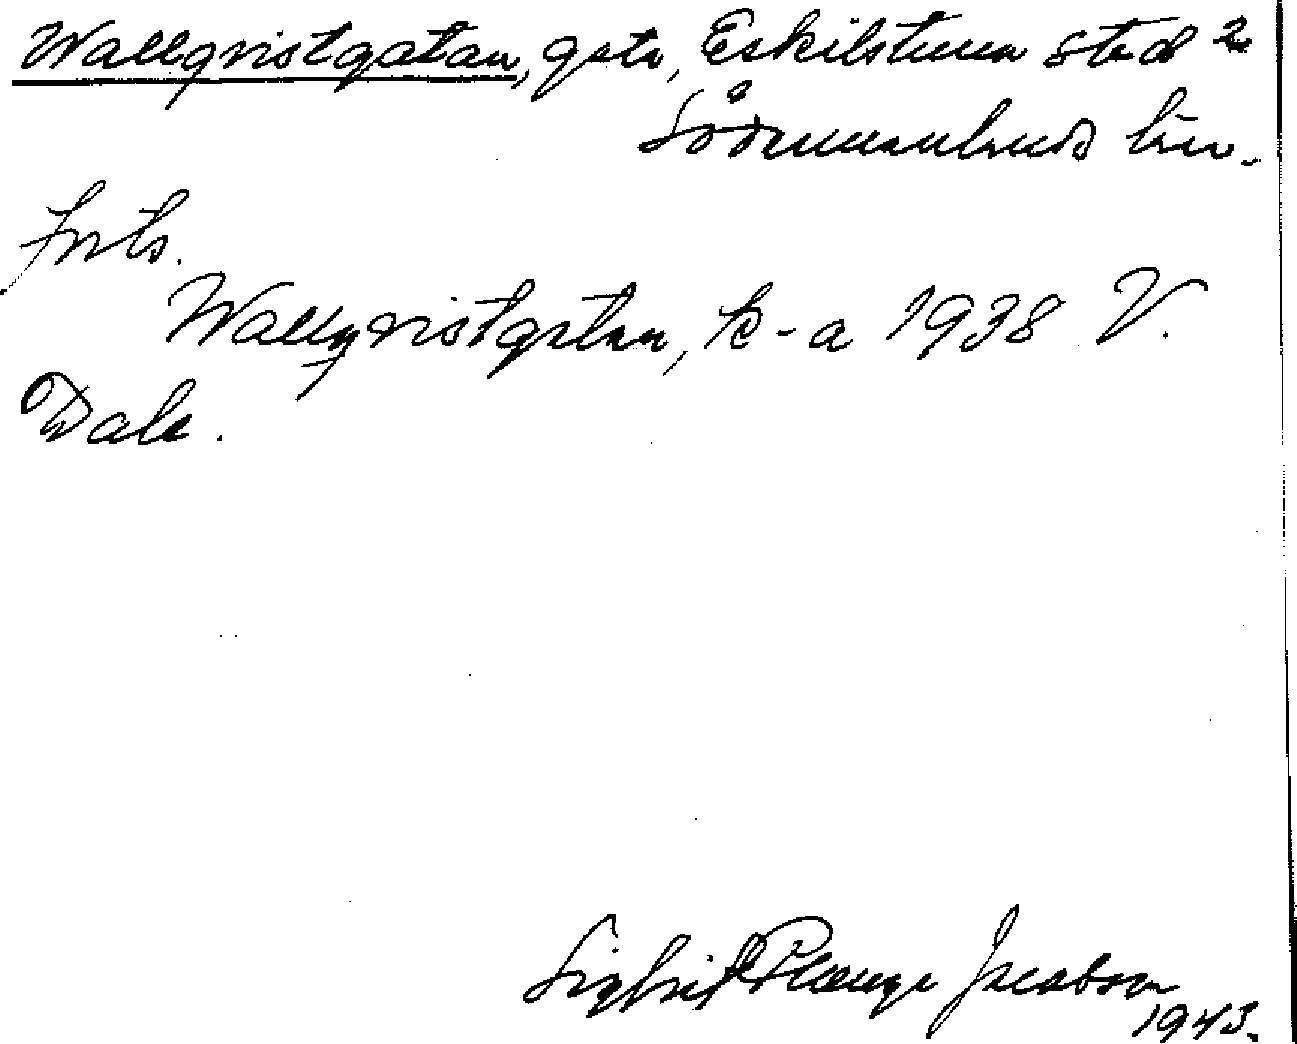 Wallqvistgatan, gata, Eskilstuna stad 2
Södermanlands län.
forts.
Wallqvistgatan, k-a 1938 V.
Dala.
Sigfrid Plange Jacobson
1943.